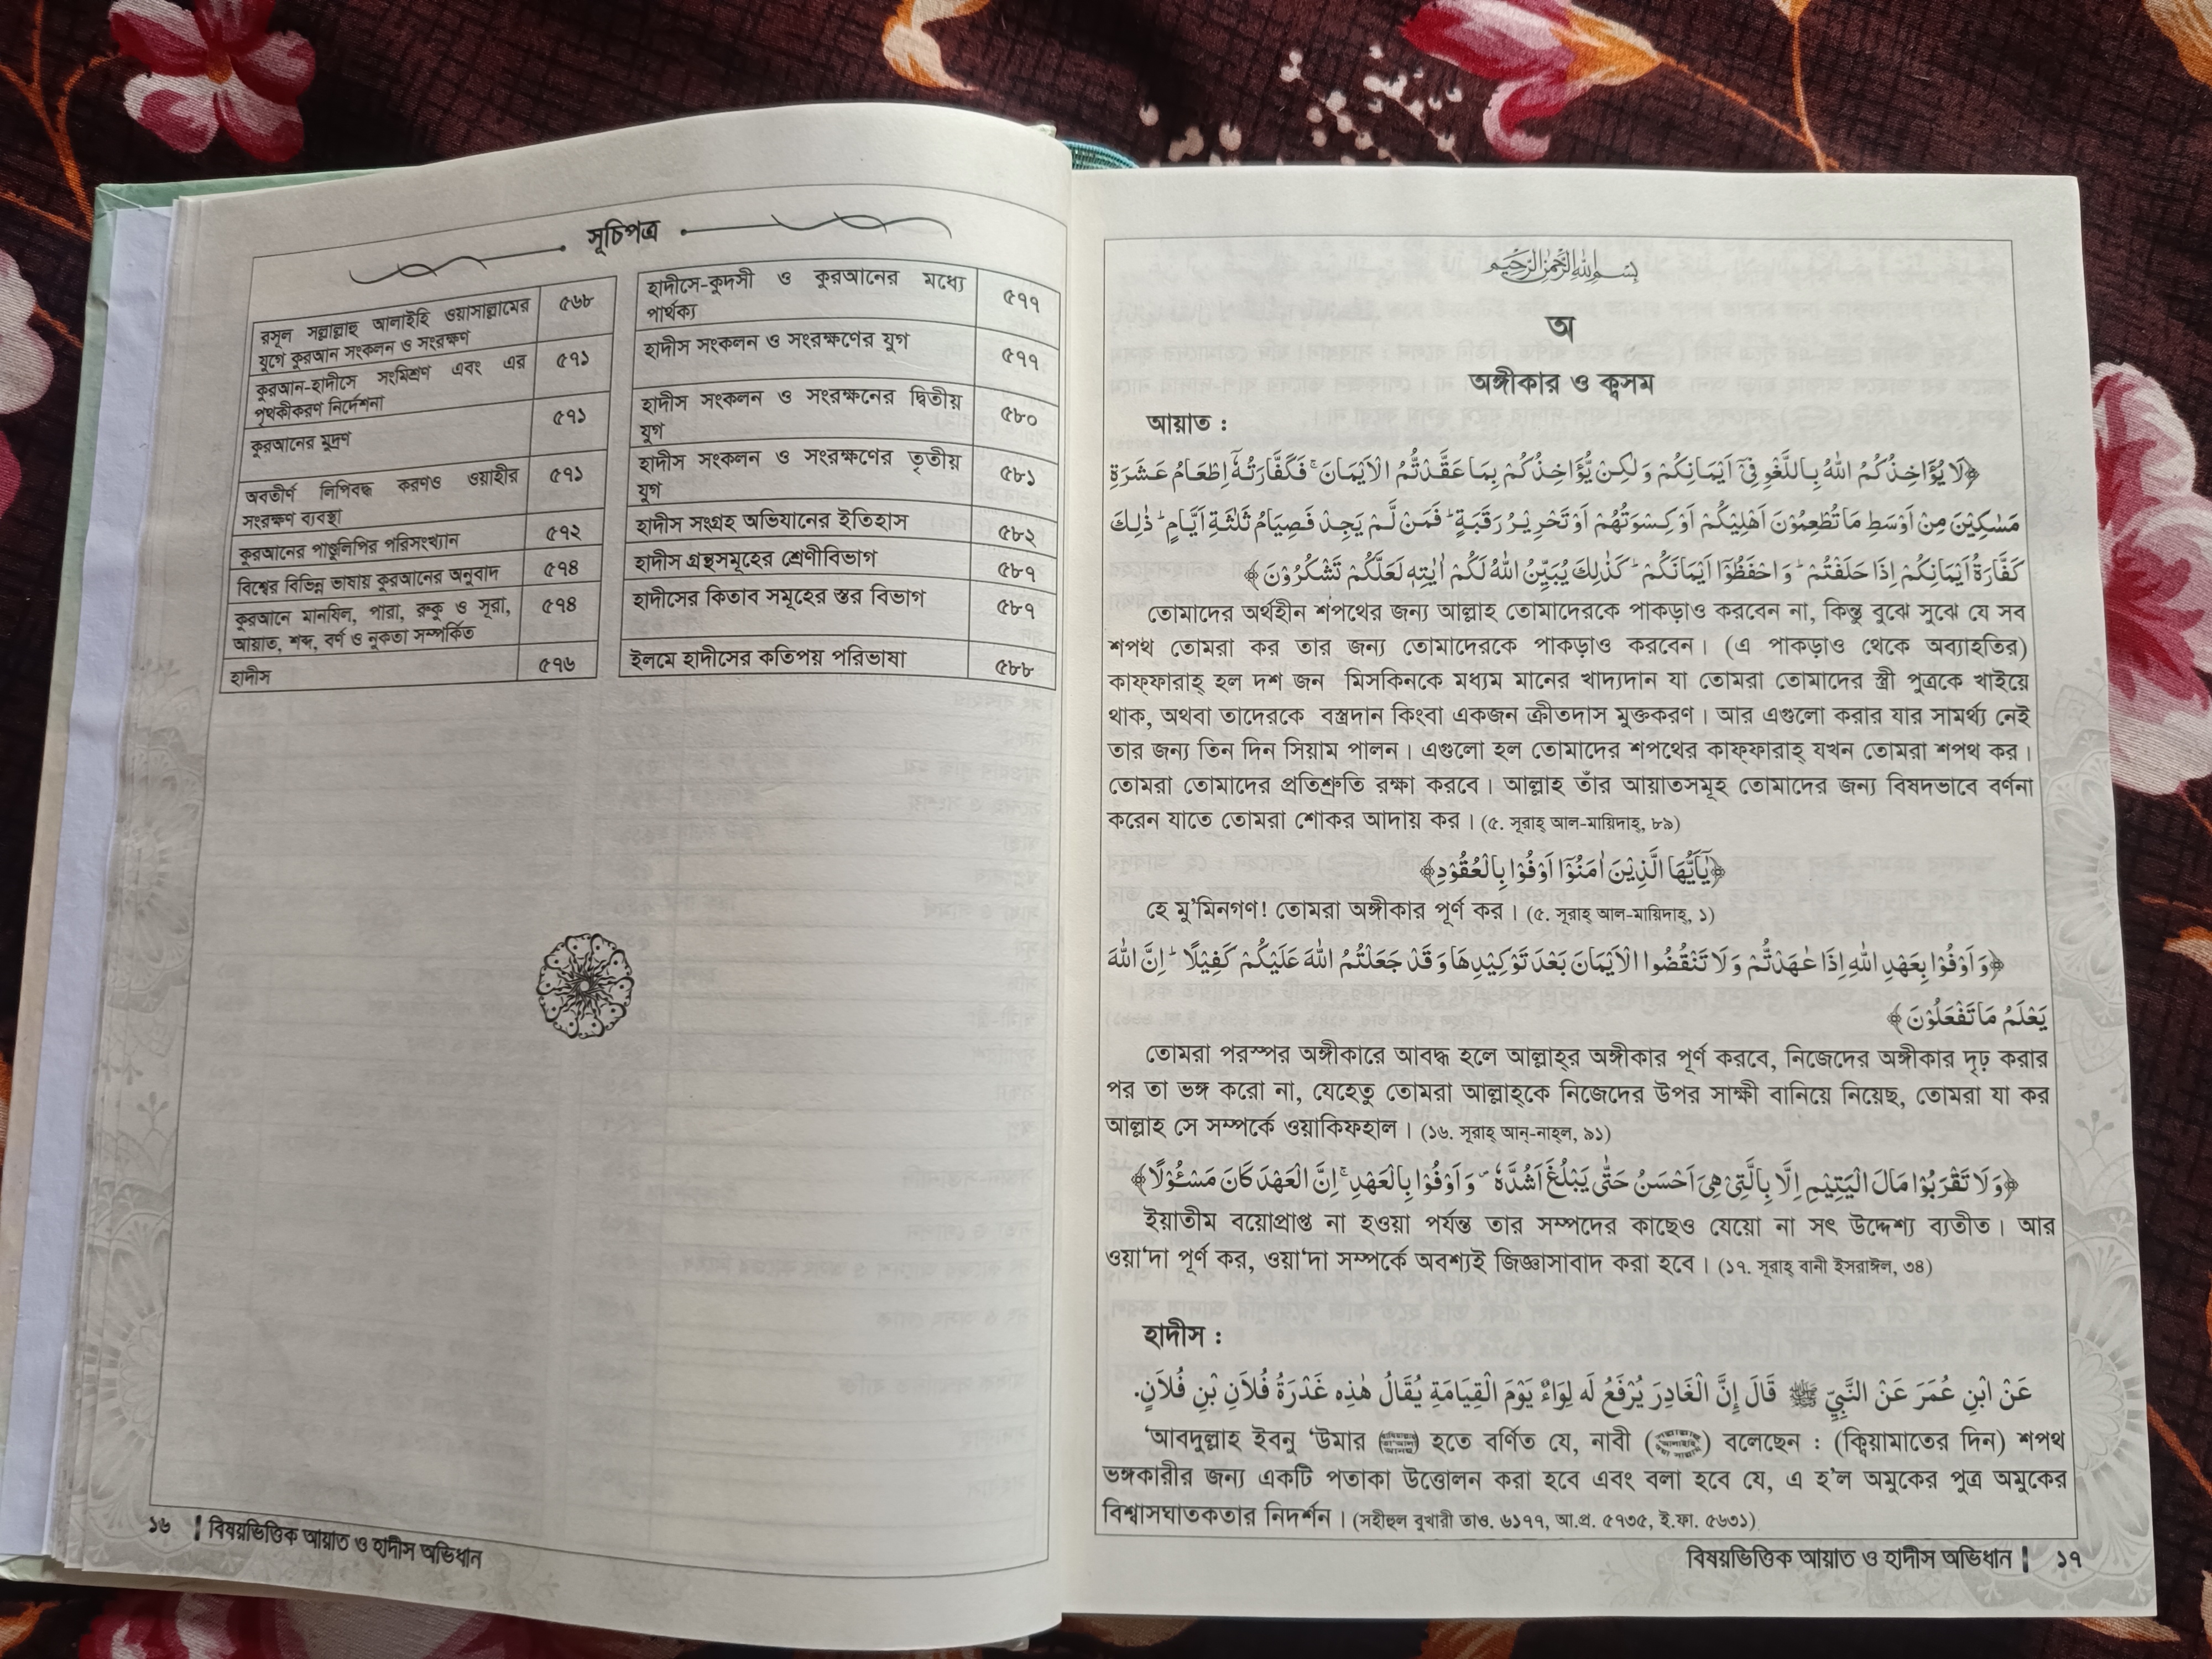 সূচিপত্র
রসূল সল্লাল্লাহু আলাইহি ওয়াসাল্লামের
যুগে কুরআন সংকলন ও সংরক্ষণ
৫৬৮
কুরআন-হাদীসে সংমিশ্রণ এবং এর
পৃথকীকরণ নির্দেশনা
৫৭১
কুরআনের মুদ্রণ
৫৭১
অবতীর্ণ লিপিবদ্ধ করণও ওয়াহীর
সংরক্ষণ ব্যবস্থা
৫৭১
কুরআনের পাণ্ডুলিপির পরিসংখ্যান
৫৭২
বিশ্বের বিভিন্ন ভাষায় কুরআনের অনুবাদ
৫৭৪
কুরআনে মানযিল, পারা, রুকু ও সূরা,
আয়াত, শব্দ, বর্ণ ও নুকতা সম্পর্কিত
৫৭৪
হাদীস
৫৭৬
হাদীসে-কুদসী ও কুরআনের মধ্যে
পার্থক্য
৫৭৭
হাদীস সংকলন ও সংরক্ষণের যুগ
৫৭৭
হাদীস সংকলন ও সংরক্ষনের দ্বিতীয়
যুগ
৫৮০
হাদীস সংকলন ও সংরক্ষণের তৃতীয়
যুগ
৫৮১
হাদীস সংগ্রহ অভিযানের ইতিহাস
৫৮২
হাদীস গ্রন্থসমূহের শ্রেণীবিভাগ
৫৮৭
হাদীসের কিতাব সমূহের স্তর বিভাগ
৫৮৭
ইলমে হাদীসের কতিপয় পরিভাষা
৫৮৮
১৬ | বিষয়ভিত্তিক আয়াত ও হাদীস অভিধান
بِسْمِ اللهِ الرَّحْمٰنِ الرَّحِيْمِ
অ
অঙ্গীকার ও ক্বসম
আয়াত :
﴿لَا يُؤَاخِذُكُمُ اللهُ بِاللَّغْوِ فِيْٓ اَيْمَانِكُمْ وَلٰكِنْ يُّؤَاخِذُكُمْ بِمَا عَقَّدْتُّمُ الْاَيْمَانَ ۚ فَكَفَّارَتُهٗٓ اِطْعَامُ عَشَرَةِ
مَسٰكِيْنَ مِنْ اَوْسَطِ مَا تُطْعِمُوْنَ اَهْلِيْكُمْ اَوْ كِسْوَتُهُمْ اَوْ تَحْرِيْرُ رَقَبَةٍ ؕ فَمَنْ لَّمْ يَجِدْ فَصِيَامُ ثَلٰثَةِ اَيَّامٍ ؕ ذٰلِكَ
كَفَّارَةُ اَيْمَانِكُمْ اِذَا حَلَفْتُمْ ؕ وَاحْفَظُوْٓا اَيْمَانَكُمْ ؕ كَذٰلِكَ يُبَيِّنُ اللهُ لَكُمْ اٰيٰتِهٖ لَعَلَّكُمْ تَشْكُرُوْنَ ﴾
তোমাদের অর্থহীন শপথের জন্য আল্লাহ তোমাদেরকে পাকড়াও করবেন না, কিন্তু বুঝে সুঝে যে সব
শপথ তোমরা কর তার জন্য তোমাদেরকে পাকড়াও করবেন। (এ পাকড়াও থেকে অব্যাহতির)
কাফ্ফারাহ্ হল দশ জন মিসকিনকে মধ্যম মানের খাদ্যদান যা তোমরা তোমাদের স্ত্রী পুত্রকে খাইয়ে
থাক, অথবা তাদেরকে বস্ত্রদান কিংবা একজন ক্রীতদাস মুক্তকরণ। আর এগুলো করার যার সামর্থ্য নেই
তার জন্য তিন দিন সিয়াম পালন। এগুলো হল তোমাদের শপথের কাফ্ফারাহ্ যখন তোমরা শপথ কর।
তোমরা তোমাদের প্রতিশ্রুতি রক্ষা করবে। আল্লাহ তাঁর আয়াতসমূহ তোমাদের জন্য বিষদভাবে বর্ণনা
করেন যাতে তোমরা শোকর আদায় কর। (৫. সূরাহ্ আল-মায়িদাহ্, ৮৯)
﴿يٰٓاَيُّهَا الَّذِيْنَ اٰمَنُوْٓا اَوْفُوْا بِالْعُقُوْدِ﴾
হে মু’মিনগণ! তোমরা অঙ্গীকার পূর্ণ কর। (৫. সূরাহ্ আল-মায়িদাহ্, ১)
﴿وَ اَوْفُوْا بِعَهْدِ اللهِ اِذَا عٰهَدْتُّمْ وَلَا تَنْقُضُوا الْاَيْمَانَ بَعْدَ تَوْكِيْدِهَا وَقَدْ جَعَلْتُمُ اللهَ عَلَيْكُمْ كَفِيْلًا ؕ اِنَّ اللهَ
يَعْلَمُ مَا تَفْعَلُوْنَ ﴾
তোমরা পরস্পর অঙ্গীকারে আবদ্ধ হলে আল্লাহ্‌র অঙ্গীকার পূর্ণ করবে, নিজেদের অঙ্গীকার দৃঢ় করার
পর তা ভঙ্গ করো না, যেহেতু তোমরা আল্লাহ্‌কে নিজেদের উপর সাক্ষী বানিয়ে নিয়েছ, তোমরা যা কর
আল্লাহ সে সম্পর্কে ওয়াকিফহাল। (১৬. সূরাহ্ আন্-নাহ্‌ল, ৯১)
﴿وَلَا تَقْرَبُوْا مَالَ الْيَتِيْمِ اِلَّا بِالَّتِيْ هِيَ اَحْسَنُ حَتّٰى يَبْلُغَ اَشُدَّهٗ ۪ وَ اَوْفُوْا بِالْعَهْدِ ۚ اِنَّ الْعَهْدَ كَانَ مَسْـُٔوْلًا﴾
ইয়াতীম বয়োপ্রাপ্ত না হওয়া পর্যন্ত তার সম্পদের কাছেও যেয়ো না সৎ উদ্দেশ্য ব্যতীত। আর
ওয়া‘দা পূর্ণ কর, ওয়া‘দা সম্পর্কে অবশ্যই জিজ্ঞাসাবাদ করা হবে। (১৭. সূরাহ্ বানী ইসরাঈল, ৩৪)
হাদীস :
عَنْ ابْنِ عُمَرَ عَنْ النَّبِيِّ ﷺ قَالَ إِنَّ الْغَادِرَ يُرْفَعُ لَه لِوَاءٌ يَوْمَ الْقِيَامَةِ يُقَالُ هٰذِه غَدْرَةُ فُلاَنِ بْنِ فُلاَنٍ.
‘আবদুল্লাহ ইবনু ‘উমার () হতে বর্ণিত যে, নাবী () বলেছেন : (ক্বিয়ামাতের দিন) শপথ
ভঙ্গকারীর জন্য একটি পতাকা উত্তোলন করা হবে এবং বলা হবে যে, এ হ’ল অমুকের পুত্র অমুকের
বিশ্বাসঘাতকতার নিদর্শন। (সহীহুল বুখারী তাও. ৬১৭৭, আ.প্র. ৫৭৩৫, ই.ফা. ৫৬৩১)
বিষয়ভিত্তিক আয়াত ও হাদীস অভিধান | ১৭